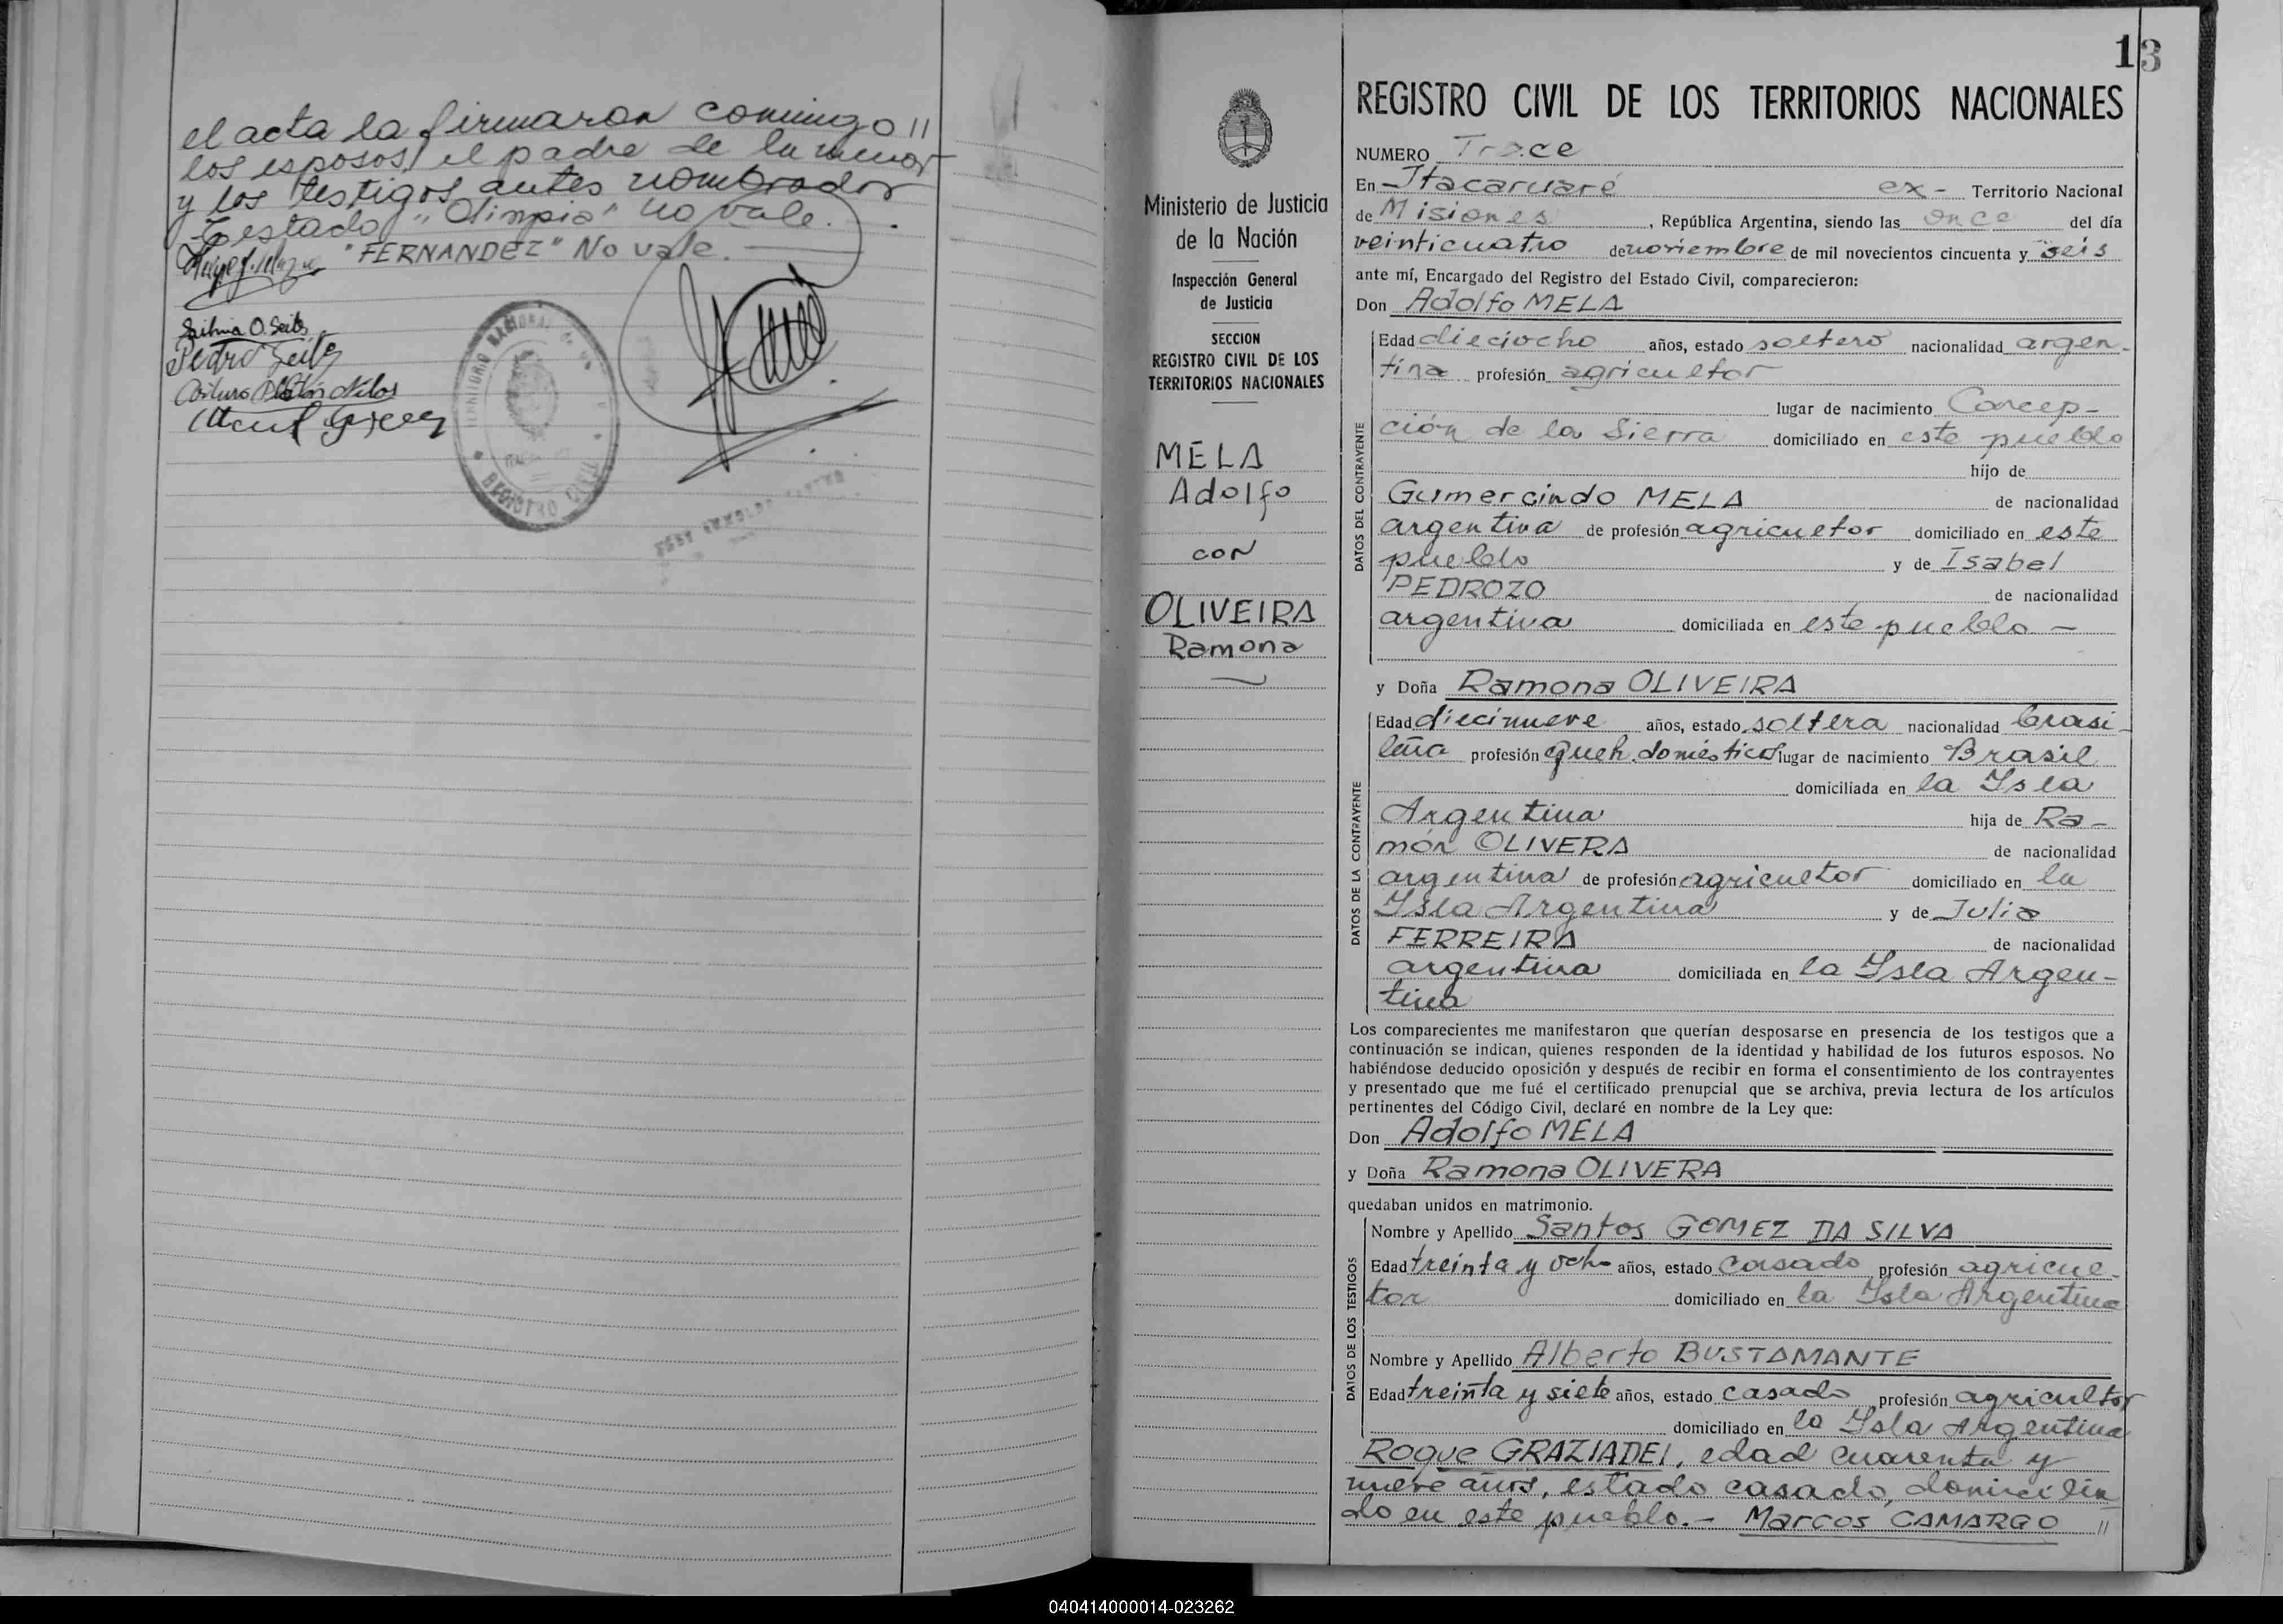 el acta la firmaron conmigo //
los esposos, el padre de la menor
y los testigos antes nombrados
Testado "Olimpio" no vale.
"FERNANDEZ" No vale.
Silvina O. Seits
Pedro Seits
Arturo
REGISTRO CIVIL
13
REGISTRO CIVIL DE LOS TERRITORIOS NACIONALES
Ministerio de Justicia
de la Nación
Inspección General
de Justicia
SECCION
REGISTRO CIVIL DE LOS
TERRITORIOS NACIONALES
MELA
Adolfo
CON
OLIVEIRA
Ramona
NUMERO Trece
En Itacaruaré ex- Territorio Nacional
de Misiones, República Argentina, siendo las once del día
veinticuatro de noviembre de mil novecientos cincuenta y seis
ante mí, Encargado del Registro del Estado Civil, comparecieron:
Don Adolfo MELA
DATOS DEL CONTRAYENTE
Edad dieciocho años, estado soltero nacionalidad argen-
tina profesión agricultor
lugar de nacimiento Concep-
ción de la Sierra domiciliado en este pueblo
hijo de
Gumercindo MELA de nacionalidad
argentina de profesión agricultor domiciliado en este
pueblo y de Isabel
PEDROZO de nacionalidad
argentina domiciliada en este pueblo —
y Doña Ramona OLIVEIRA
DATOS DE LA CONTRAYENTE
Edad diecinueve años, estado soltera nacionalidad brasi-
leña profesión queh. domésticos lugar de nacimiento Brasil
domiciliada en la Isla
Argentina hija de Ra-
món OLIVERA de nacionalidad
argentina de profesión agricultor domiciliado en la
Isla Argentina y de Julia
FERREIRA de nacionalidad
argentina domiciliada en la Isla Argen-
tina
Los comparecientes me manifestaron que querían desposarse en presencia de los testigos que a
continuación se indican, quienes responden de la identidad y habilidad de los futuros esposos. No
habiéndose deducido oposición y después de recibir en forma el consentimiento de los contrayentes
y presentado que me fué el certificado prenupcial que se archiva, previa lectura de los artículos
pertinentes del Código Civil, declaré en nombre de la Ley que:
Don Adolfo MELA
y Doña Ramona OLIVERA
quedaban unidos en matrimonio.
DATOS DE LOS TESTIGOS
Nombre y Apellido Santos GOMEZ DA SILVA
Edad treinta y ocho años, estado casado profesión agricul-
tor domiciliado en la Isla Argentina
Nombre y Apellido Alberto BUSTAMANTE
Edad treinta y siete años, estado casado profesión agricultor
domiciliado en la Isla Argentina
Roque GRAZIADEI, edad cuarenta y
nueve años, estado casado, domicilia
do en este pueblo.- Marcos CAMARGO //
040414000014-023262